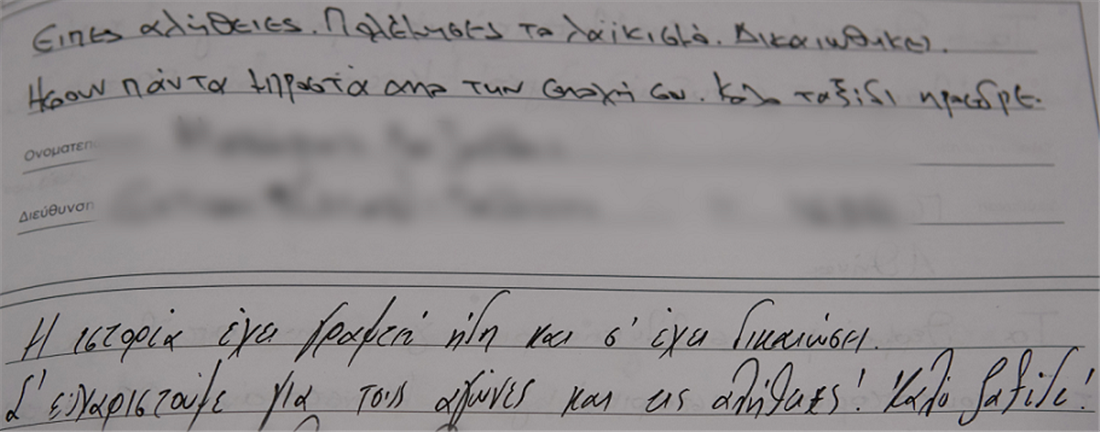 Ειπες αλήθειες. Πολέμησες το λαϊκισμό. Δικαιώθηκες.
Ησουν πάντα μπροστά απο την εποχή σου. Καλο ταξίδι προεδρε.
Ονοματεπ
Διεύθυνση
Η ιστορία έχει γραφτεί ήδη και σ' έχει δικαιώσει.
Σ' ευχαριστούμε για τους αγώνες και τις αλήθειες! Καλό ταξίδι!